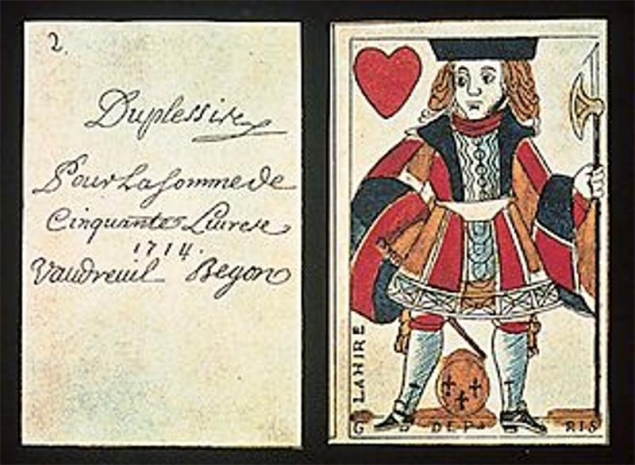 2.
Duplessis
Pour La Somme de
Cinquantes Livres
1714.
Vaudreuil Begon
LAHIRE
G DE PA RIS